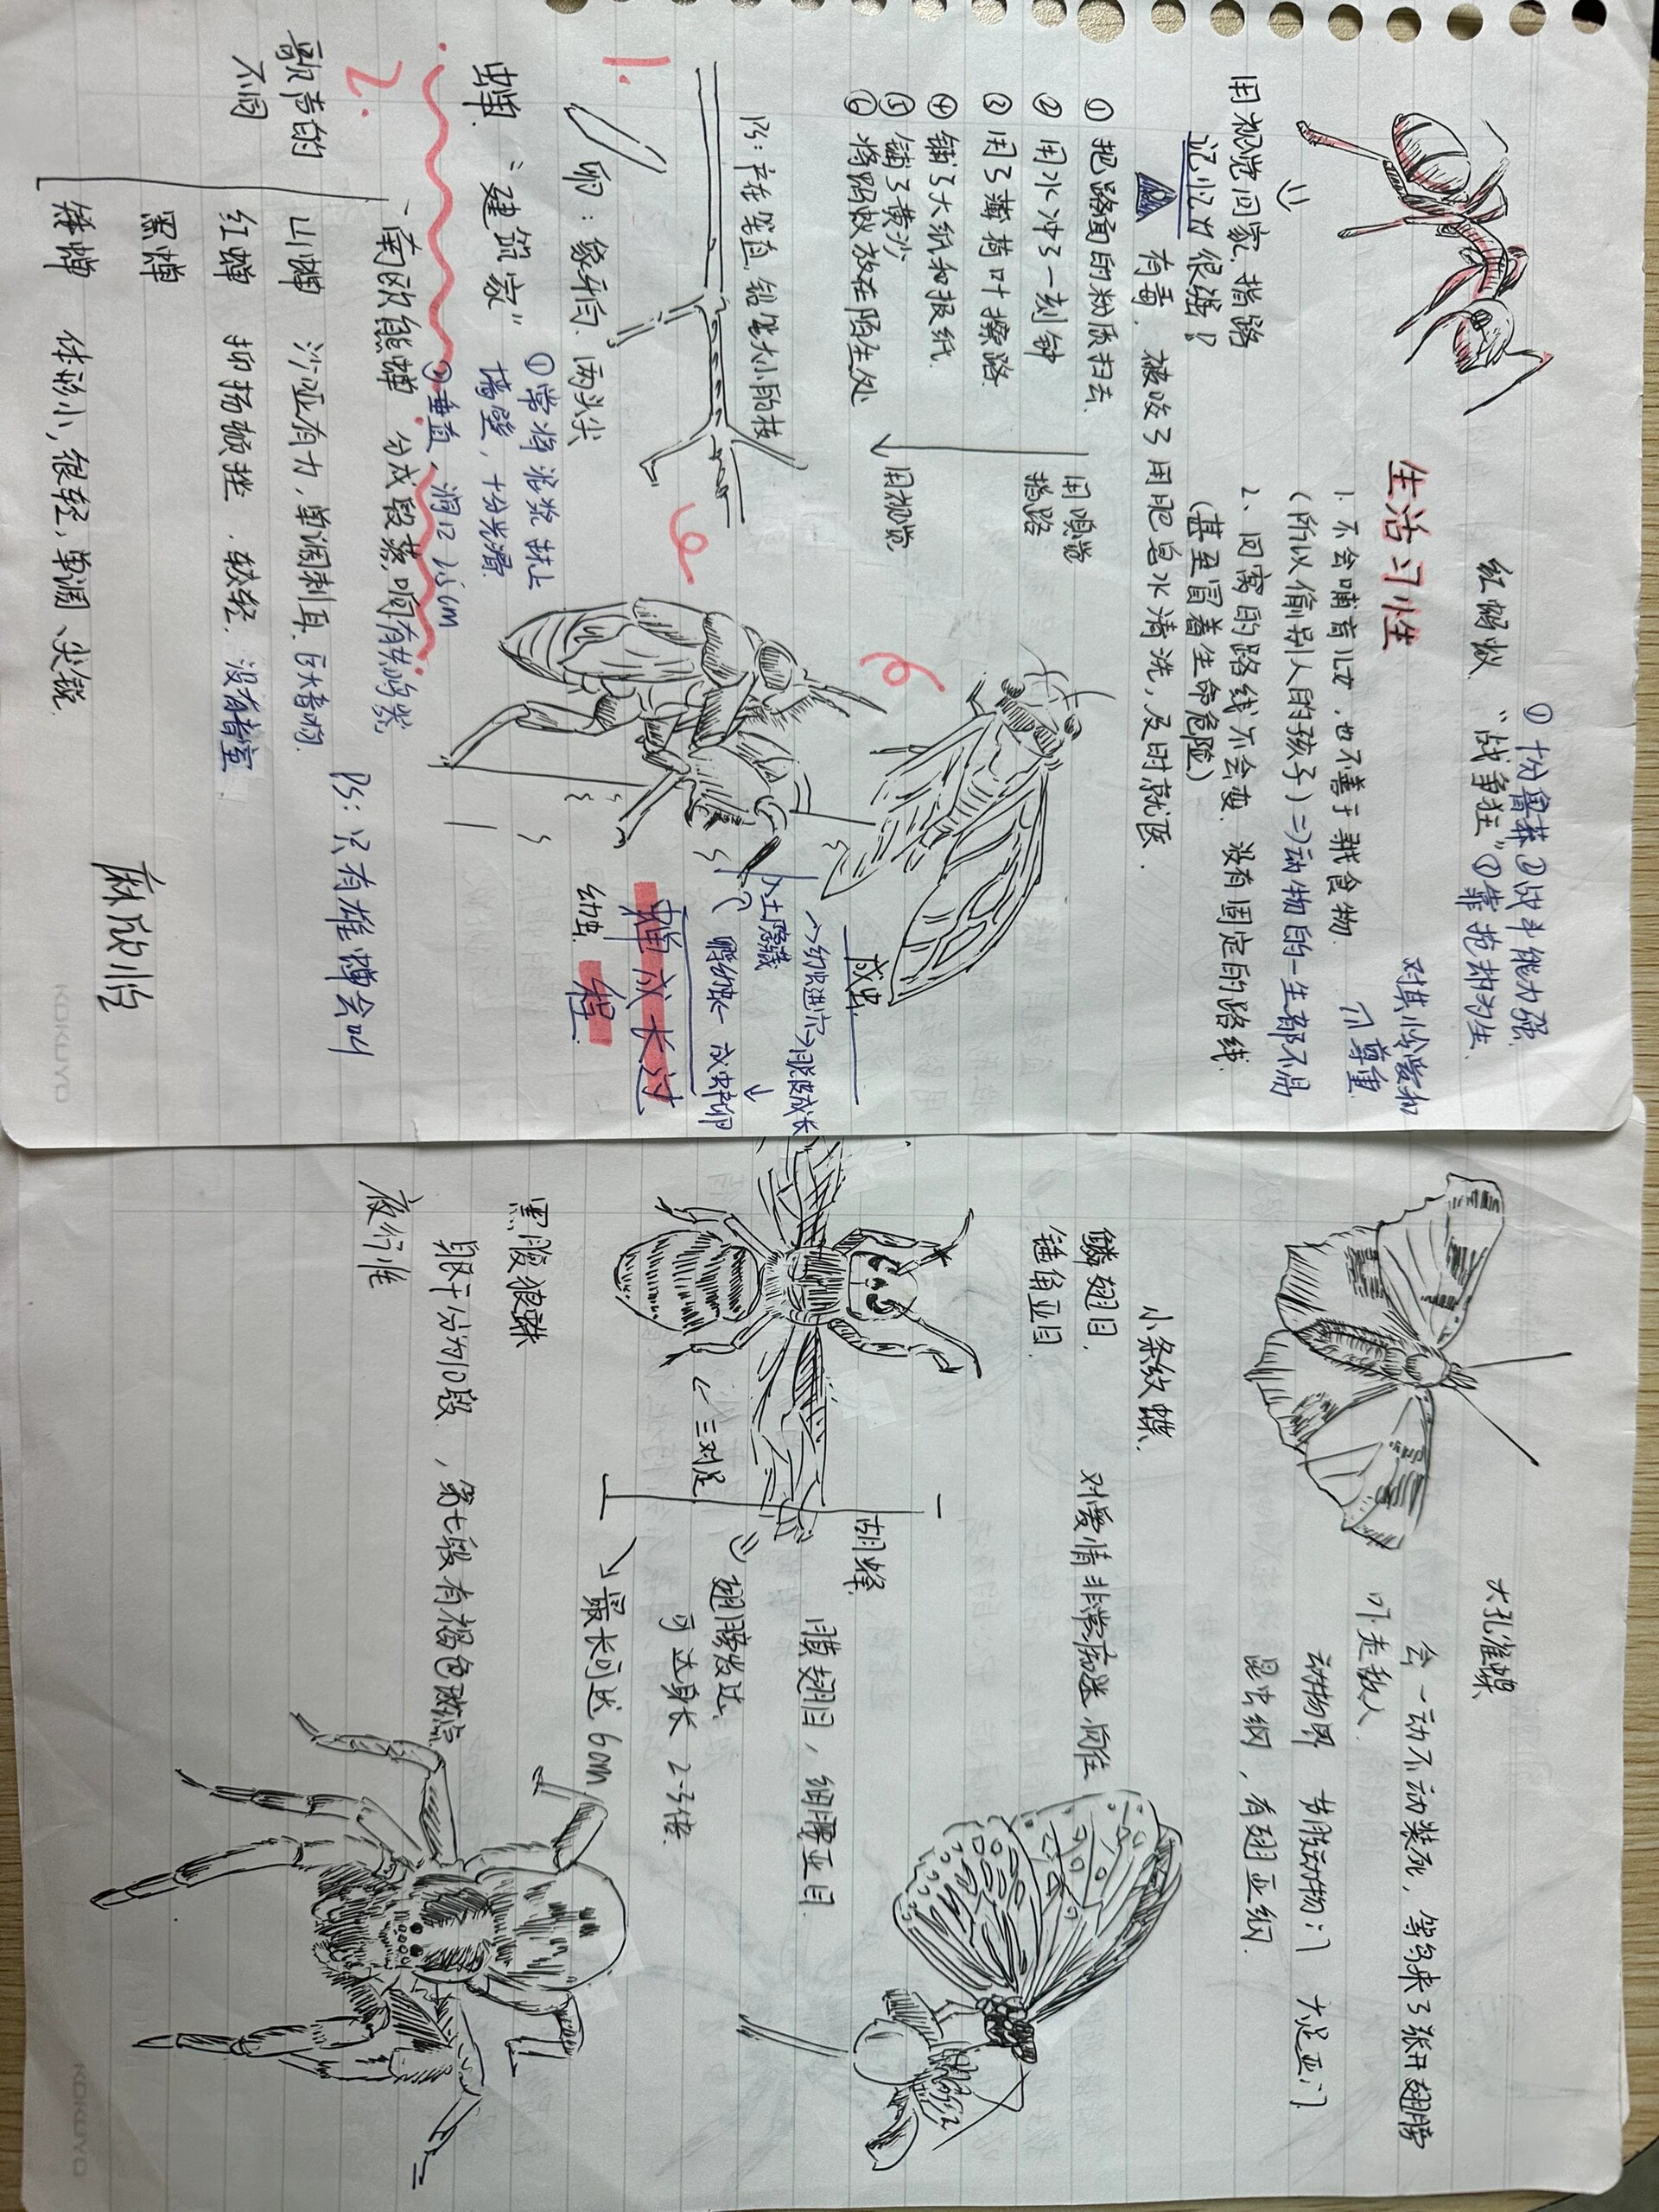 红蚂蚁
"战争狂"
①十分鲁莽②战斗能力强
①靠抢劫为生
生活习性
对其怜爱和
尊重
1. 不会哺育儿女，也不善于寻找食物.
(所以偷别人的孩子)=>动物的一生都不易
2、回窝的路线不会变. 没有固定的路线.
(甚至冒着生命危险)
用视觉回家.指路
记忆力很强!
有毒. 被咬了用肥皂水清洗,及时就医.
①把路面的粉质扫去.
②用水冲了一刻钟
③用了薄荷叶擦路
④铺了大纸和报纸.
⑤铺了黄沙
⑥将蚂蚁放在陌生处
用嗅觉
指路
用视觉
PS: 产在笔直.铅笔大小的枝
1.
卵：象牙白. 两头尖
蝉.
"建筑家"
①常将泥浆抹上
墙壁，十分光滑.
②垂直、洞口2.5cm
成虫
幼虫进行
脱皮成长
入土隐藏
成虫产卵
蝉成长过
程
幼虫
2.
南欧熊蝉 分成段蒸 有共鸣
歌声的
不同
山蝉 沙哑有力，单调刺耳. 巨大音响.
红蝉 抑扬顿挫. 较轻. 没有音室.
黑蝉
矮蝉 体形小，很轻，单调、尖锐.
PS：只有雄蝉会叫
麻欣怡
KOKUYO
大孔雀蝶
会一动不动装死，等鸟来了张开翅膀
吓走敌人
动物界 节肢动物门 六足亚门
昆虫纲，有翅亚纲.
小条纹蝶.
鳞翅目.
锤角亚目.
对爱情非常痴迷.向往
胡蜂.
膜翅目，细腰亚目.
翅膀发达.
可达身长2-3倍.
三对足
最长可达6cm
黑腹狼蛛
眼干分为10段，第七段有褐色斑点
夜行准
KOKUYO